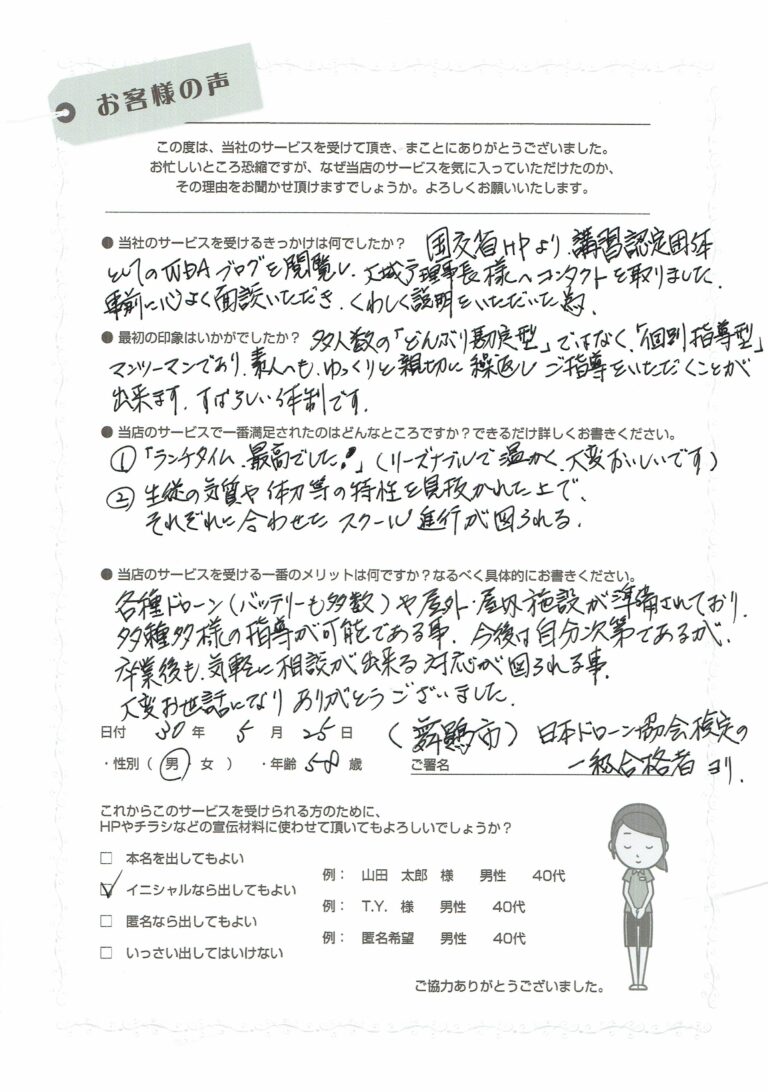 お客様の声
この度は、当社のサービスを受けて頂き、まことにありがとうございました。
お忙しいところ恐縮ですが、なぜ当店のサービスを気に入っていただけたのか、
その理由をお聞かせ頂けますでしょうか。よろしくお願いいたします。
● 当社のサービスを受けるきっかけは何でしたか？ 国交省HPより、講習認定団体
としてのWDAブログを閲覧し、大城戸理事長様へコンタクトを取りました。
事前に心よく面談いただき、くわしく説明をいただいた為。
● 最初の印象はいかがでしたか？ 多人数の「どんぶり勘定型」ではなく、「個別指導型」
マンツーマンであり、素人へも、ゆっくりと親切に繰返しご指導をいただくことが
出来ます。すばらしい体制です。
● 当店のサービスで一番満足されたのはどんなところですか？できるだけ詳しくお書きください。
① 「ランチタイム、最高でした！」（リーズナブルで温かく、大変おいしいです）
② 生徒の気質や体力等の特性を見抜かれた上で、
それぞれに合わせたスクール進行が図られる。
● 当店のサービスを受ける一番のメリットは何ですか？なるべく具体的にお書きください。
各種ドローン（バッテリーも多数）や屋外・屋内施設が準備されており、
多種多様の指導が可能である事。今後は自分次第であるが、
卒業後も、気軽に相談が出来る対応が図られる事。
大変お世話になりありがとうございました。
日付 30 年 5 月 25 日 （舞鶴市）日本ドローン協会検定の
・性別（ 男 女 ） ・年齢 58 歳 ご署名 一級合格者より。
これからこのサービスを受けられる方のために、
HPやチラシなどの宣伝材料に使わせて頂いてもよろしいでしょうか？
□ 本名を出してもよい 例： 山田 太郎 様 男性 40代
☑ イニシャルなら出してもよい 例： T.Y. 様 男性 40代
□ 匿名なら出してもよい 例： 匿名希望 男性 40代
□ いっさい出してはいけない
ご協力ありがとうございました。